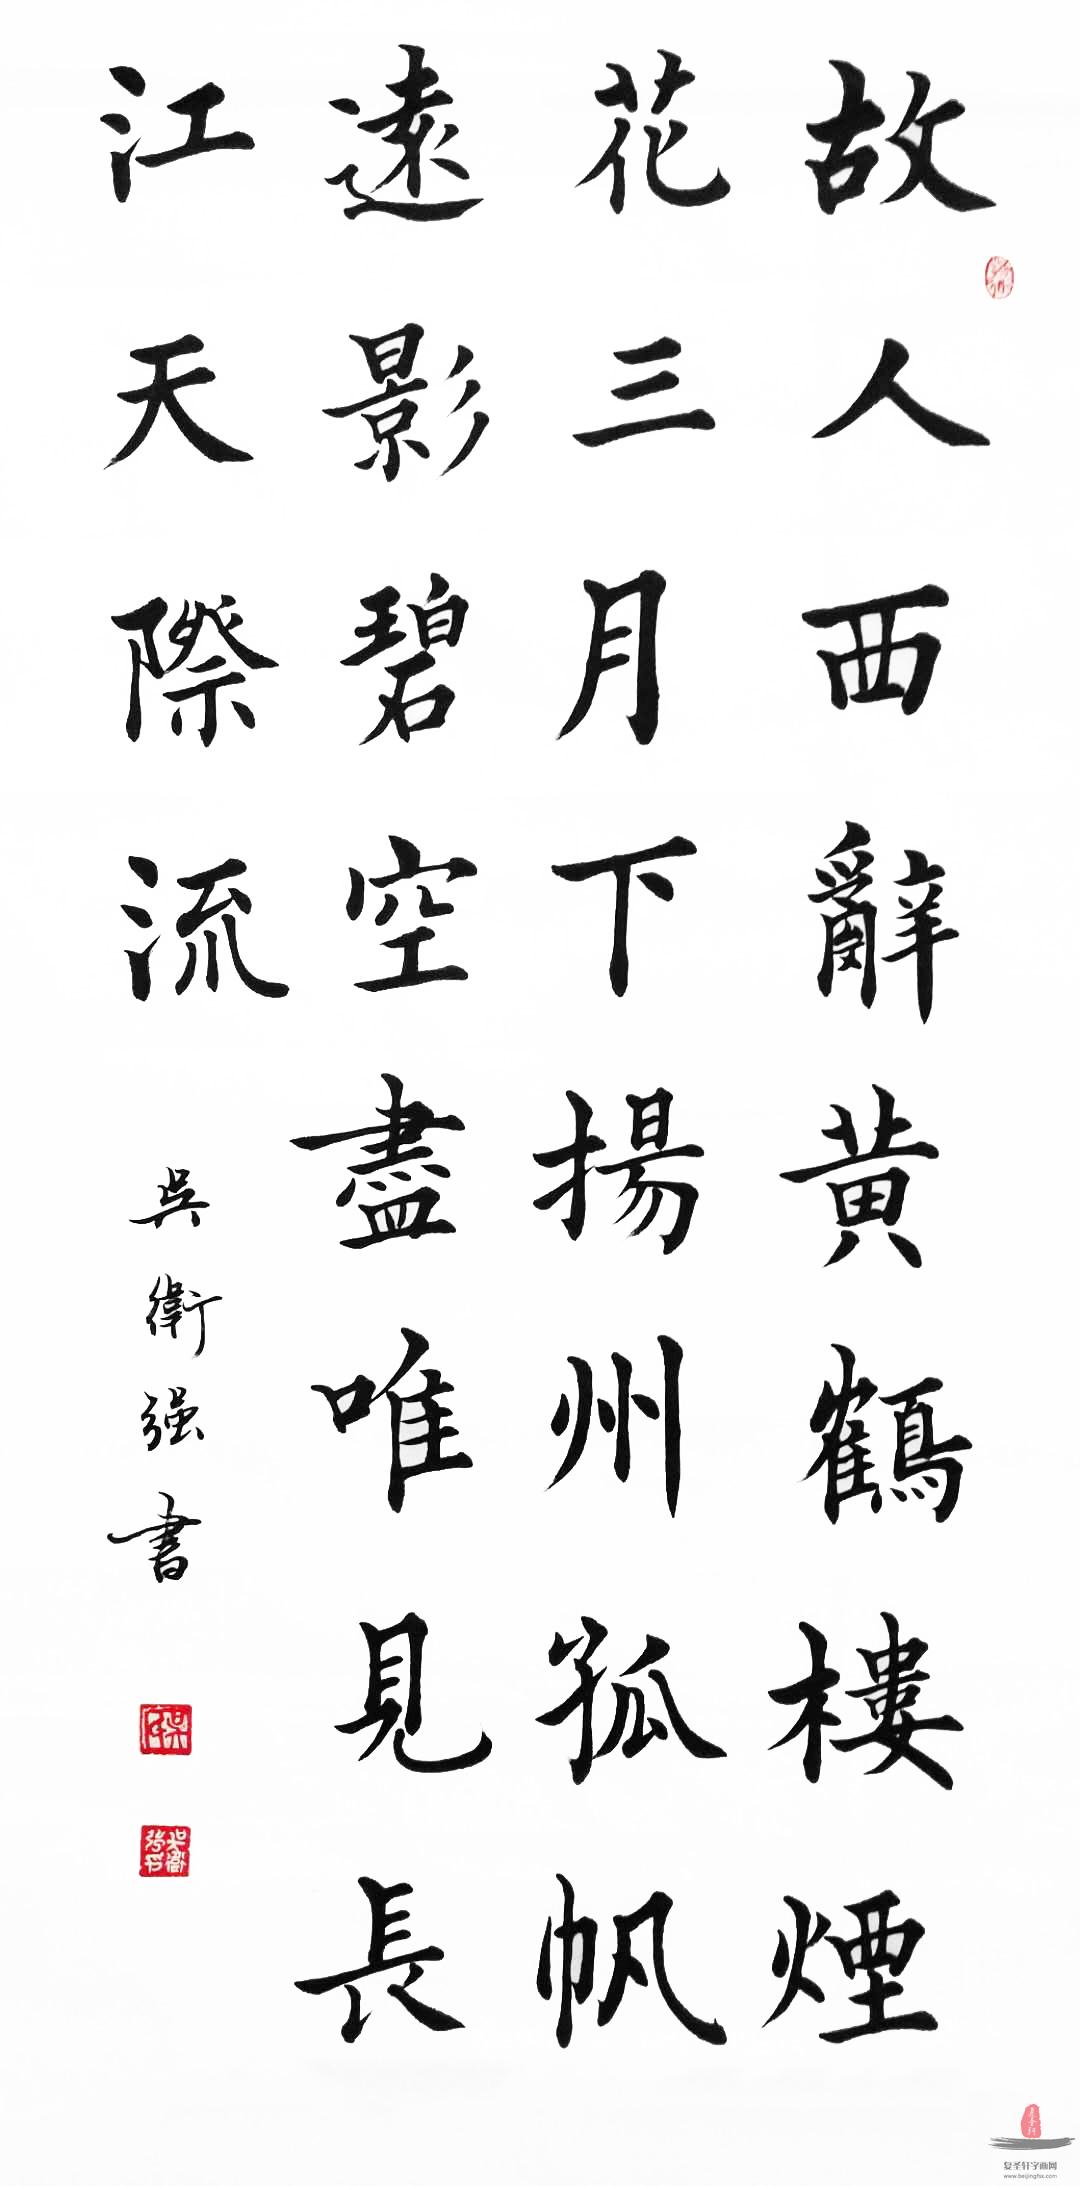 故人西辭黄鶴樓煙
花三月下揚州孤帆
遠影碧空盡唯見長
江天際流
吳衛强書
吳衛强印
复圣轩字画网
www.beijingfsx.com